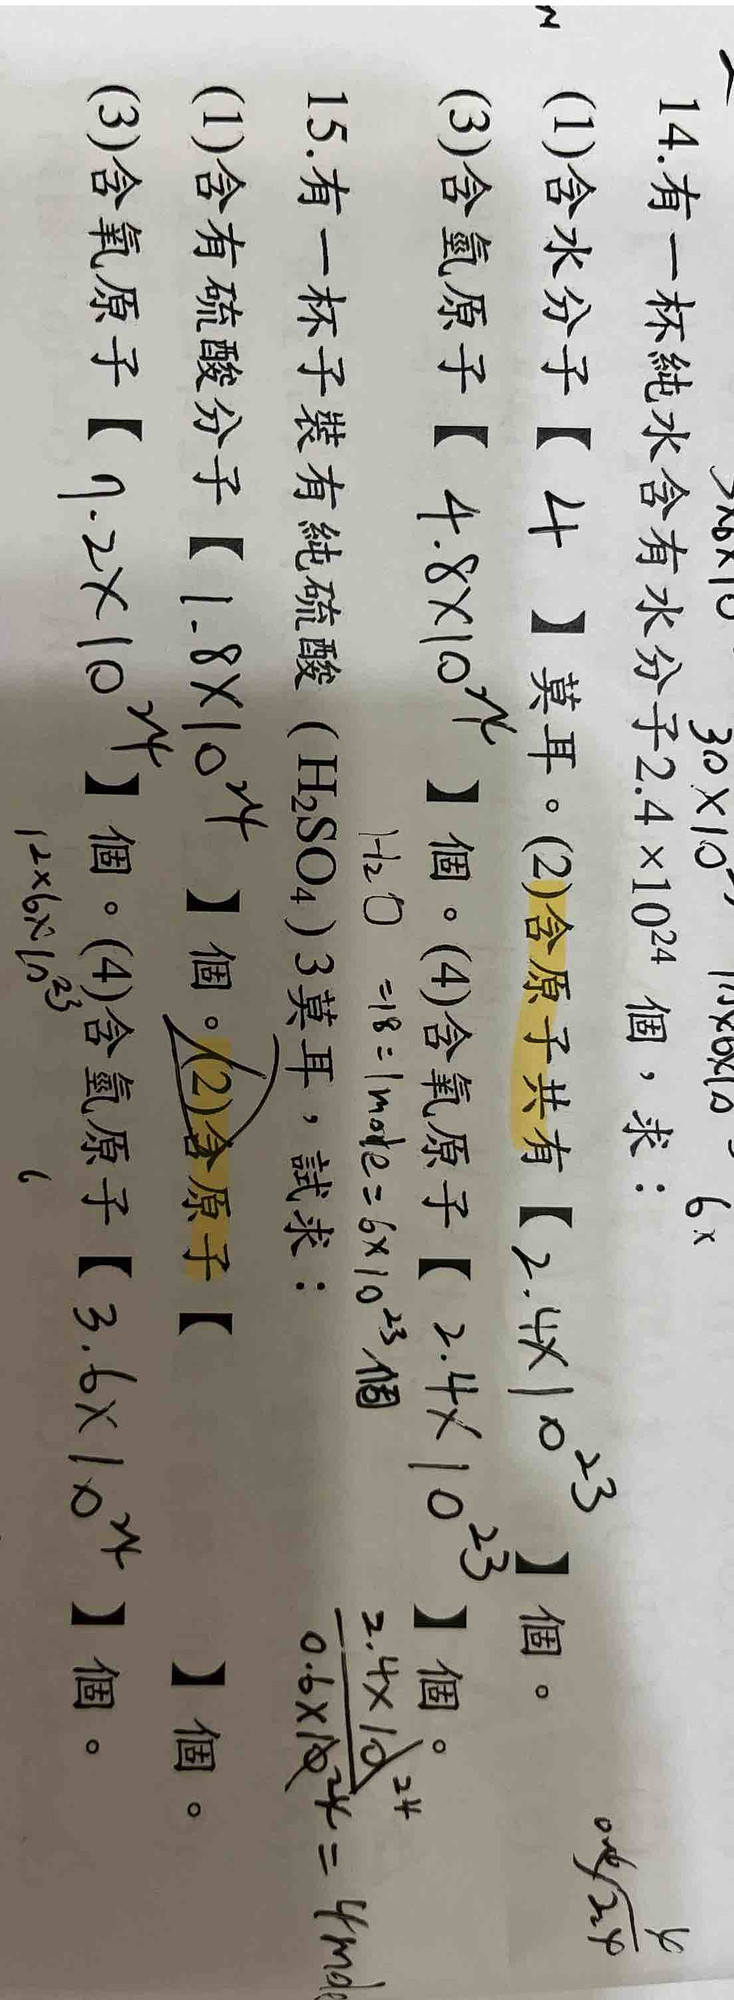 14.有一杯純水含有水分子2.4×10²⁴ 個，求：
(1)含水分子【 4 】莫耳。(2)含原子共有【2.4×10²³ 】個。
(3)含氫原子【 4.8×10²⁴ 】個。(4)含氧原子【 2.4×10²³ 】個。
H₂O =18=1mole=6×10²³個
2.4×10²⁴
0.6×10²⁴ = 4mole
15.有一杯子裝有純硫酸（H₂SO₄）3莫耳，試求：
(1)含有硫酸分子【1.8×10²⁴ 】個。(2)含原子【 】個。
(3)含氧原子【7.2×10²⁴ 】個。(4)含氫原子【3.6×10²⁴ 】個。
12×6×10²³
6